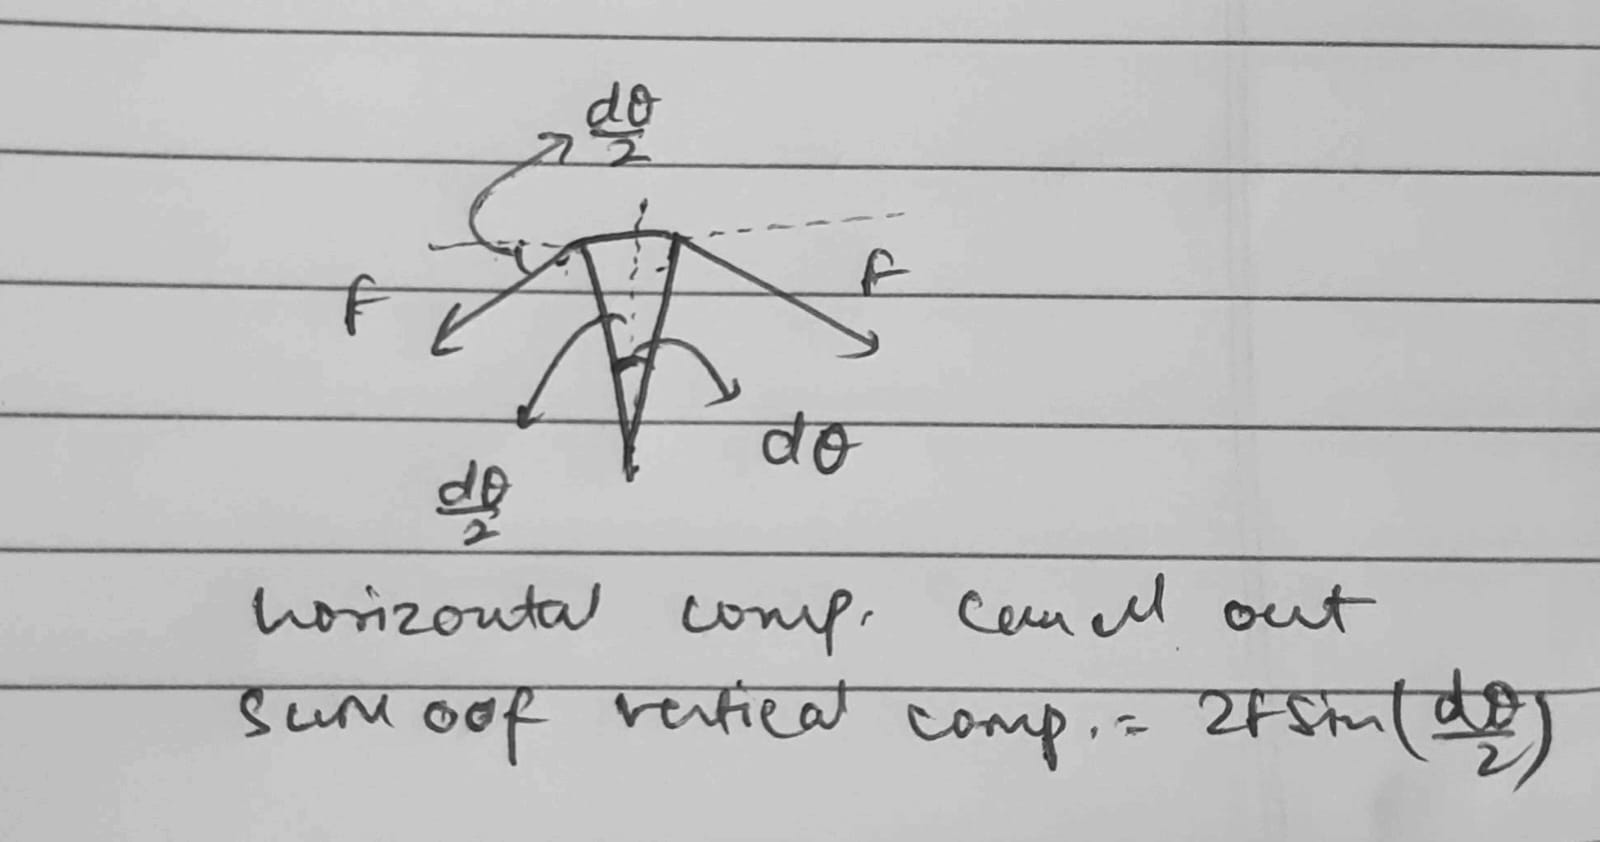 dθ/2
F
F
dθ
dθ/2
horizontal comp. cancel out
sum oof vertical comp. = 2F sin(dθ/2)